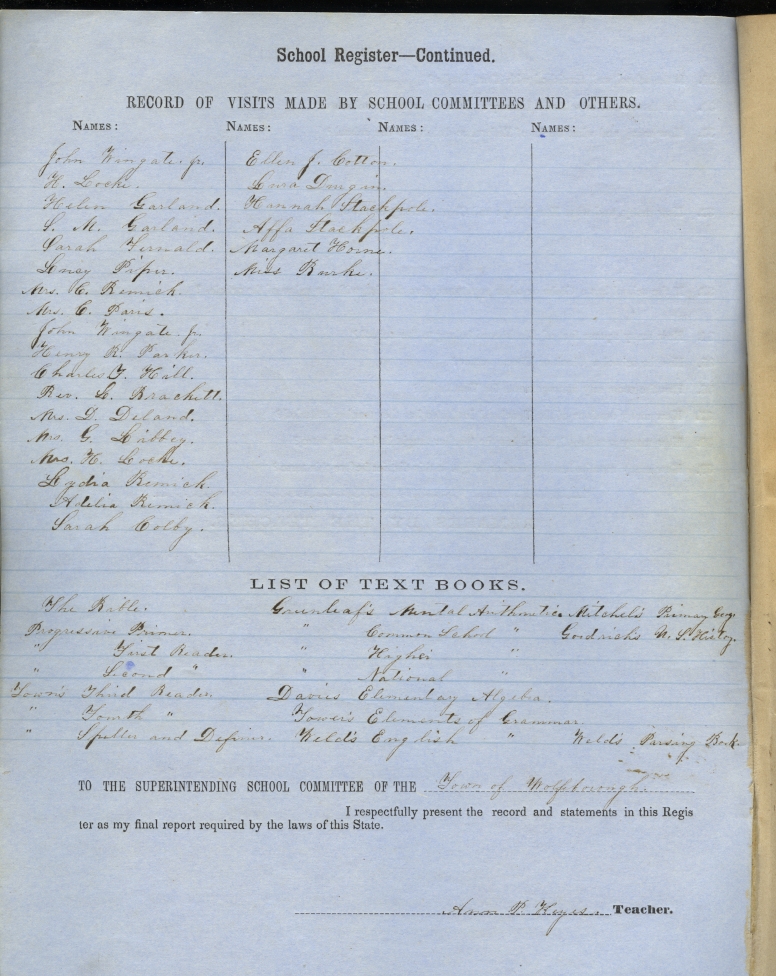 School Register—Continued.
RECORD OF VISITS MADE BY SCHOOL COMMITTEES AND OTHERS.
NAMES: NAMES: NAMES: NAMES:
John Wingate jr.
H. Locke.
Helen Garland.
S. M. Garland.
Sarah Fernald.
Lucy Piper.
Mrs. C. Remick.
Mrs. C. Paris.
John Wingate jr.
Henry R. Parker.
Charles F. Hill.
Rev. L. Brackett.
Mrs. D. Deland.
Mrs. G. Libbey.
Mrs. H. Locke.
Lydia Remick.
Adelia Remick.
Sarah Colby.
Ellen J. Cotton.
Hannah Stackpole.
Affa Stackpole.
Margaret Horne.
Miss Burke.
LIST OF TEXT BOOKS.
The Bible. Greenleaf's Mental Arithmetic Mitchel's Primary Geog.
Progressive Primer. " Common School " Goodrichs U.S. History.
" First Reader. " Higher "
" Second " " National "
Town's Third Reader Davies Elementary Algebra.
" Fourth " Tower's Elements of Grammar
" Speller and Definer. Weld's English " Weld's Parsing Book.
TO THE SUPERINTENDING SCHOOL COMMITTEE OF THE Town of Wolfborough.
I respectfully present the record and statements in this Regis
ter as my final report required by the laws of this State.
P. Keyes. Teacher.